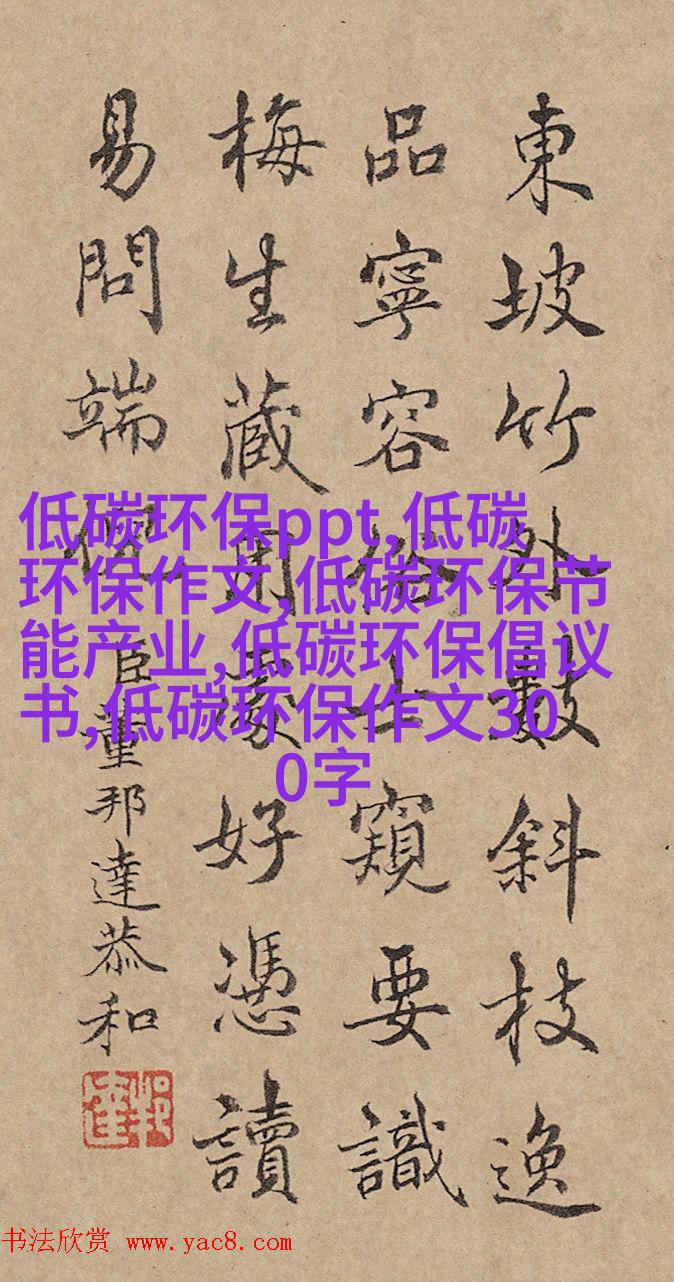 東坡竹外數斜枝逸
品寧容俗士窺要識
梅生藏用處好憑讀
易問端倪
臣董邦達恭和
低碳环保ppt,低碳
环保作文,低碳环保节
能产业,低碳环保倡议
书,低碳环保作文30
0字
书法欣赏 www.yac8.com